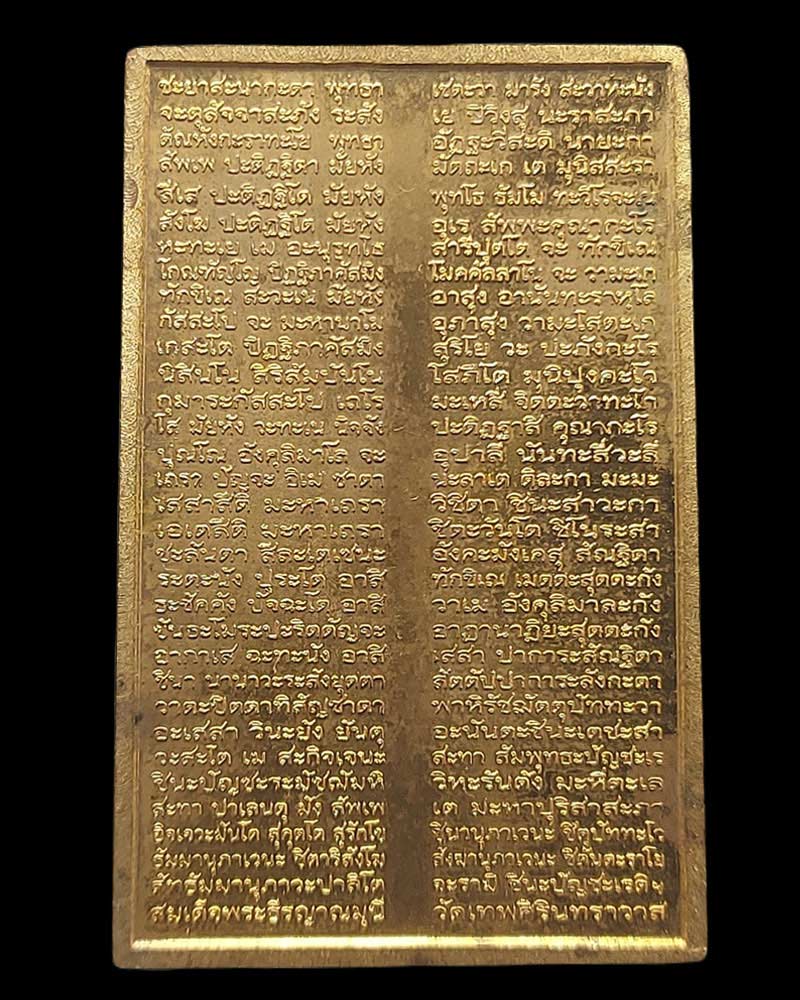 ชะยาสะนากะตา พุทธา เชตะวา มารัง สะวาหะนัง
จะตุสัจจาสะภัง ระสัง เย ปิวิงสุ นะราสะภา
ตัณหังกะราทะโย พุทธา อัฏฐะวีสะติ นายะกา
สัพเพ ปะติฏฐิตา มัยหัง มัตถะเก เต มุนิสสะรา
สีเส ปะติฏฐิโต มัยหัง พุทโธ ธัมโม ทะวิโลจะเน
สังโฆ ปะติฏฐิโต มัยหัง อุเร สัพพะคุณากะโร
หะทะเย เม อะนุรุทโธ สารีปุตโต จะ ทักขิเณ
โกณฑัญโญ ปิฏฐิภาคัสมิง โมคคัลลาโน จะ วามะเก
ทักขิเณ สะวะเน มัยหัง อาสุง อานันทะราหุโล
กัสสะโป จะ มะหานาโม อุภาสุง วามะโสตะเก
เกสะโต ปิฏฐิภาคัสมิง สุริโย วะ ปะภังกะโร
นิสินโน สิริสัมปันโน โสภิโต มุนิปุงคะโว
กุมาระกัสสะโป เถโร มะเหสี จิตตะวาทะโก
โส มัยหัง วะทะเน นิจจัง ปะติฏฐาสิ คุณากะโร
ปุณโณ อังคุลิมาโล จะ อุปาลี นันทะสีวะลี
เถรา ปัญจะ อิเม ชาตา นะลาเต ติละกา มะมะ
เสสาสีติ มะหาเถรา วิชิตา ชินะสาวะกา
เอเตสีติ มะหาเถรา ชิตะวันโต ชิโนระสา
ชะลันตา สีละเตเชนะ อังคะมังเคสุ สัณฐิตา
ระตะนัง ปุระโต อาสิ ทักขิเณ เมตตะสุตตะกัง
ธะชัคคัง ปัจฉะโต อาสิ วาเม อังคุลิมาละกัง
ขันธะโมระปะริตตัญจะ อาฏานาฏิยะสุตตะกัง
อากาเส ฉะทะนัง อาสิ เสสา ปาการะสัณฐิตา
ชินา นานาวะระสังยุตตา สัตตัปปาการะลังกะตา
วาตะปิตตาทิสัญชาตา พาหิรัชฌัตตุปัททะวา
อะเสสา วินะยัง ยันตุ อะนันตะชินะเตชะสา
วะสะโต เม สะกิจเจนะ สะทา สัมพุทธะปัญชะเร
ชินะปัญชะระมัชฌัมหิ วิหะรันตัง มะหีตะเล
สะทา ปาเลนตุ มัง สัพเพ เต มะหาปุริสาสะภา
อิจเจวะมันโต สุคุตโต สุรักโข ชินานุภาเวนะ ชิตุปัททะโว
ธัมมานุภาเวนะ ชิตาริสังโฆ สังฆานุภาเวนะ ชิตันตะราโย
สัทธัมมานุภาวะปาลิโต จะรามิ ชินะปัญชะเรติฯ
สมเด็จพระธีรญาณมุนี วัดเทพศิรินทราวาส